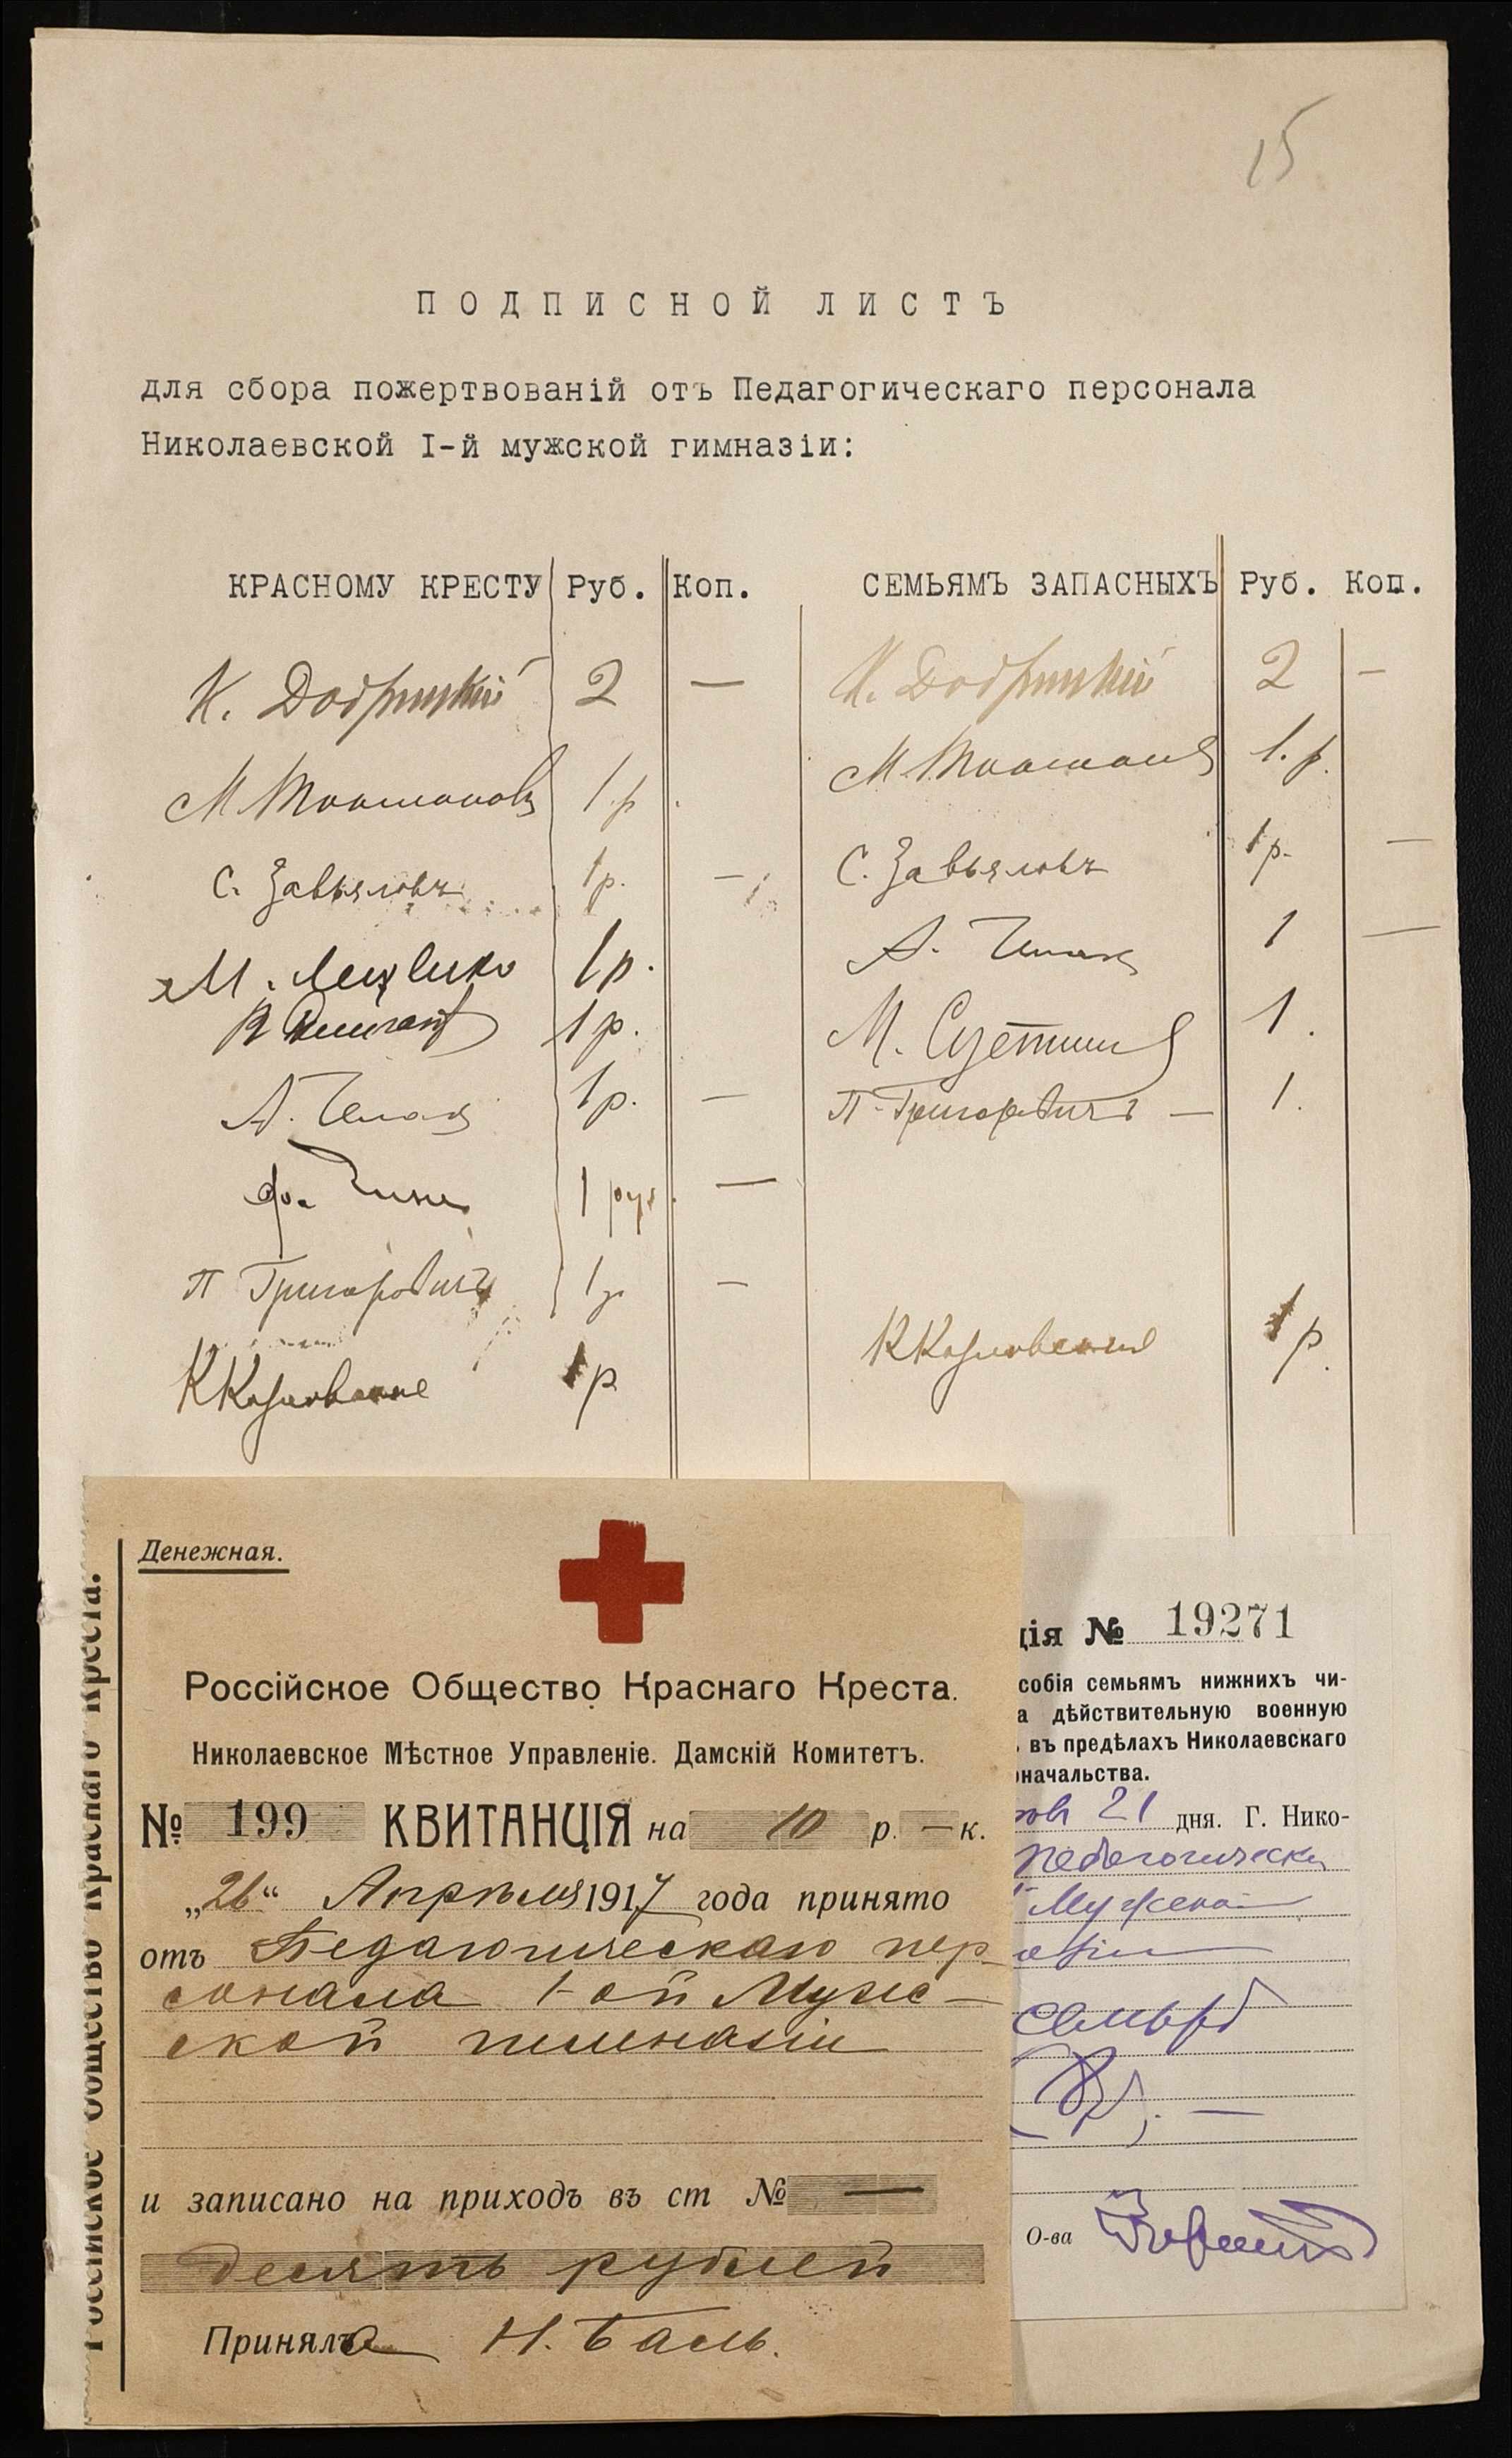 15
ПОДПИСНОЙ ЛИСТЪ
для сбора пожертвованій отъ Педагогическаго персонала
Николаевской I-й мужской гимназіи:
КРАСНОМУ КРЕСТУ Руб. Коп. СЕМЬЯМЪ ЗАПАСНЫХЪ Руб. Коп.
К. 2 — К. 2 —
М 1.р. М 1.р.
С. Завьяловъ 1р. — С. Завьяловъ 1р. —
М. 1р. А. 1 —
1р. М. 1.
А. 1р. — П. Григоровичъ — 1.
1 руб. —
П Григоровичъ 1р —
К Козловский 1р К Козловский 1р.
Россійское Общество Краснаго Креста.
Денежная.
Россійское Общество Краснаго Креста.
Николаевское Мѣстное Управленіе. Дамскій Комитетъ.
№ 199 КВИТАНЦІЯ на 10 р. — к.
„26“ Апрѣля 1917 года принято
отъ Педагогическаго пер-
сонала 1-ой Муж-
ской гимназіи
и записано на приходъ въ ст №—
десять рублей
Приняла Н. Баль.
ція № 19271
собія семьямъ нижнихъ чи-
а дѣйствительную военную
въ предѣлахъ Николаевскаго
оначальства.
21 дня. Г. Нико-
Педагогическ
Мужской
семьяр
8р. —
О-ва